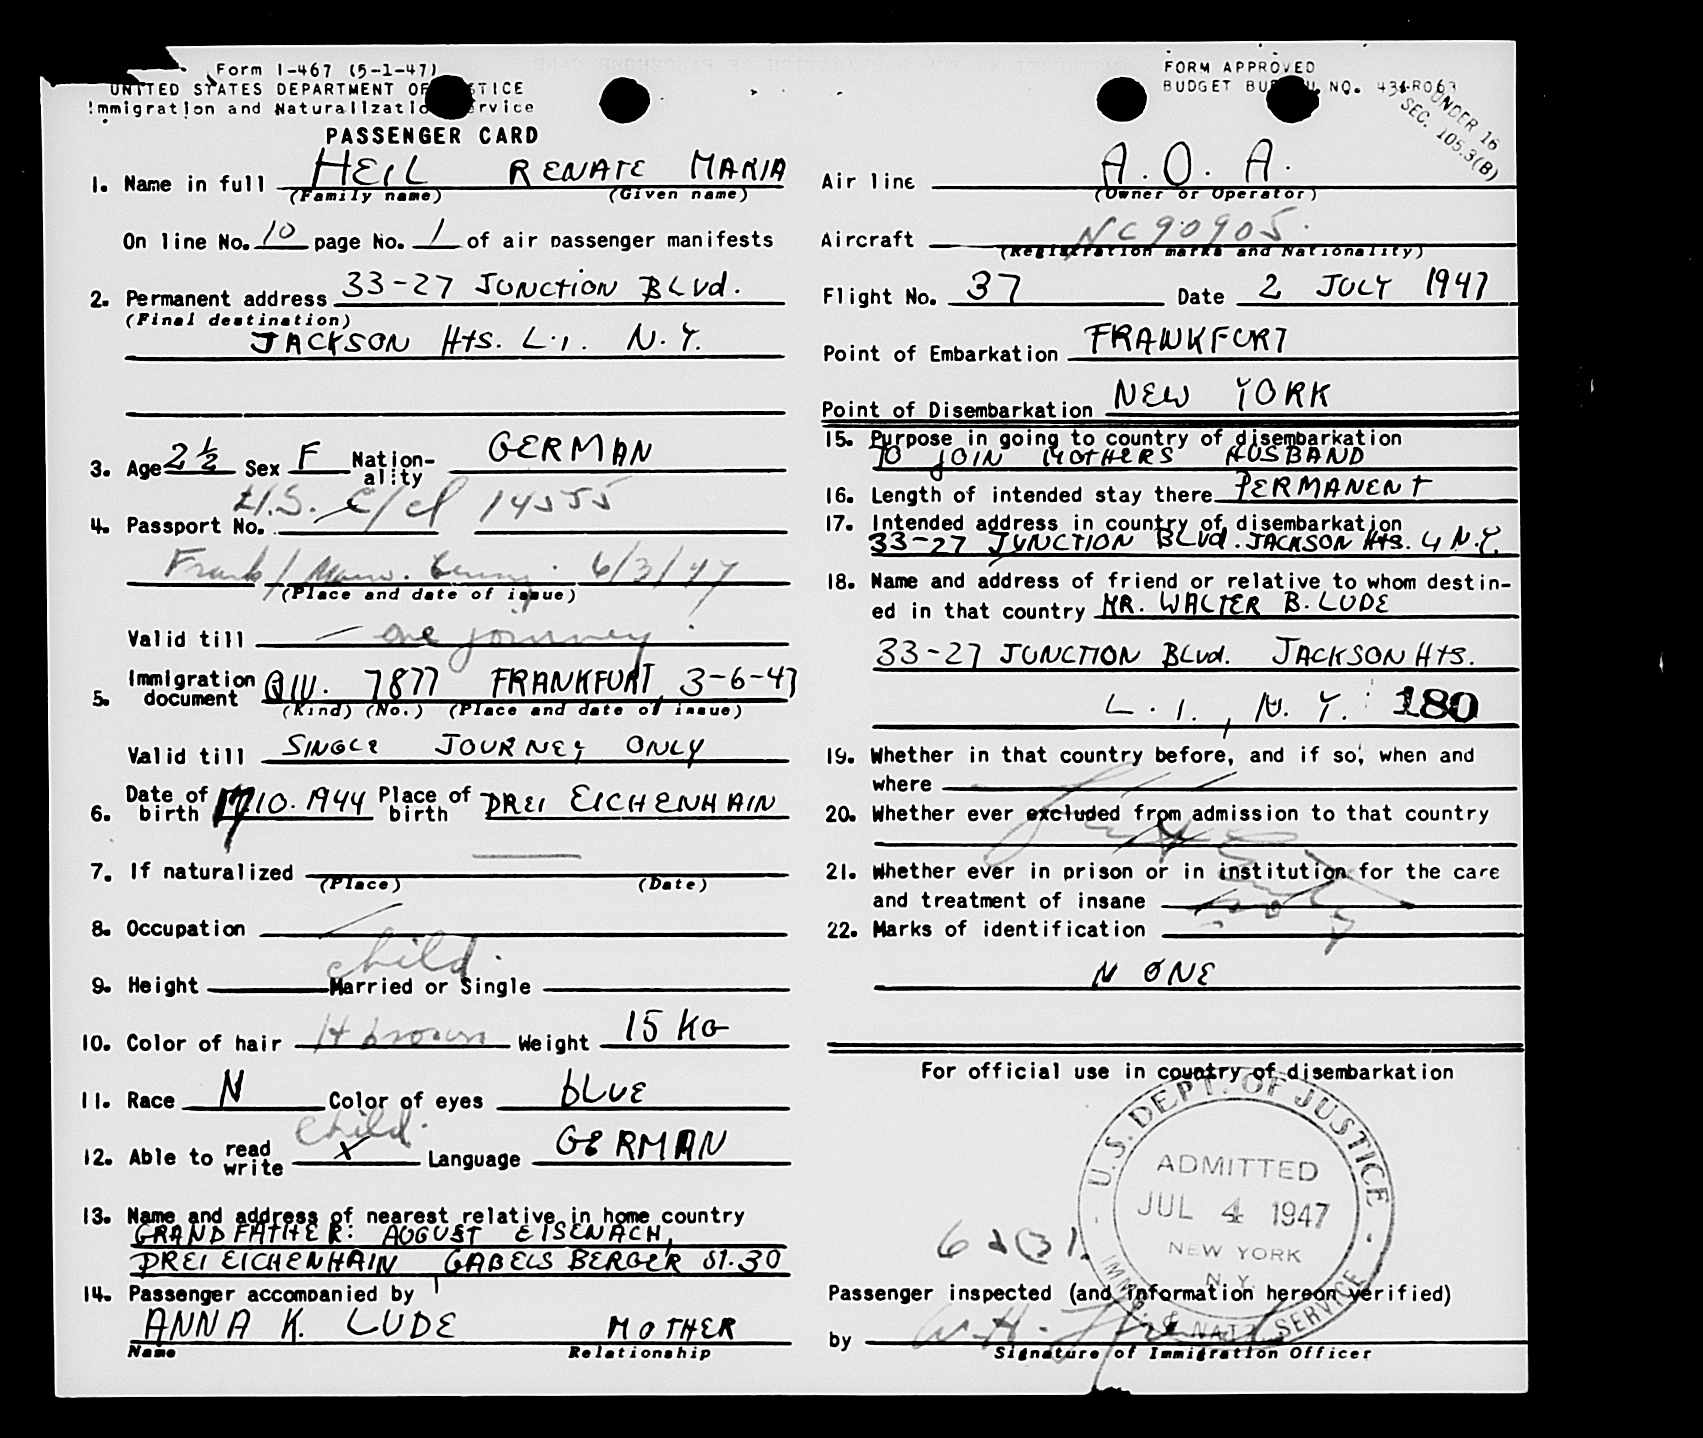 Form I-467 (5-1-47)
UNITED STATES DEPARTMENT OF JUSTICE
Immigration and Naturalization Service
PASSENGER CARD
1. Name in full HEIL RENATE MARIA
(Family name) (Given name)
On line No. 10 page No. 1 of air passenger manifests
2. Permanent address 33-27 JUNCTION BLVd.
(Final destination)
JACKSON Hts. L.I. N.Y.
3. Age 2½ Sex F Nation-ality GERMAN
4. Passport No. 14555
6/3/47
(Place and date of issue)
Valid till — one journey
5. Immigration document QIV. 7877 FRANKFURT, 3-6-47
(Kind) (No.) (Place and date of issue)
Valid till SINGLE JOURNEY ONLY
6. Date of birth 10. 1944 Place of birth DREI EICHENHAIN
7. If naturalized —
(Place) (Date)
8. Occupation
child.
9. Height Married or Single
10. Color of hair brown Weight 15 KG
11. Race N Color of eyes bLUE
child.
12. Able to read write x Language GERMAN
13. Name and address of nearest relative in home country
GRANDFATHER: AUGUST EISENACH,
DREI EICHENHAIN GABELSBERGER St. 30
14. Passenger accompanied by
ANNA K. LUDE MOTHER
Name Relationship
FORM APPROVED
BUDGET BUREAU NO. 43-R063
UNDER 16
SEC. 105.3(B)
Air line A.O.A.
(Owner or Operator)
Aircraft NC90905.
(Registration marks and Nationality)
Flight No. 37 Date 2 JULY 1947
Point of Embarkation FRANKFURT
Point of Disembarkation NEW YORK
15. Purpose in going to country of disembarkation
TO JOIN MOTHERS HUSBAND
16. Length of intended stay there PERMANENT
17. Intended address in country of disembarkation
33-27 JUNCTION BLvd. JACKSON Hts. L.I. N.Y.
18. Name and address of friend or relative to whom destin-
ed in that country MR. WALTER B. LUDE
33-27 JUNCTION BLvd. JACKSON Hts.
L.I., N.Y. 180
19. Whether in that country before, and if so, when and
where
20. Whether ever excluded from admission to that country
21. Whether ever in prison or in institution for the care
and treatment of insane
22. Marks of identification
NONE
For official use in country of disembarkation
U.S. DEPT. OF JUSTICE
ADMITTED
JUL 4 1947
NEW YORK
N.Y.
IMMIG. & NATZ. SERVICE
Passenger inspected (and information hereon verified)
by
Signature of Immigration Officer